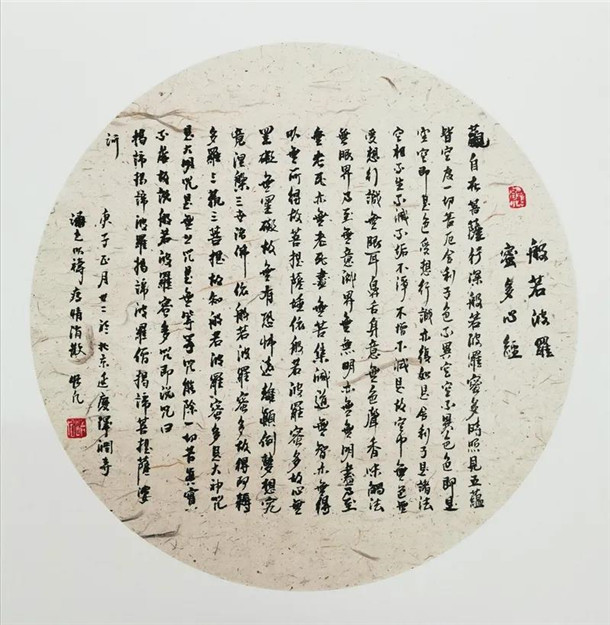 般若波羅
蜜多心經
觀自在菩薩行深般若波羅蜜多時照見五蘊
皆空度一切苦厄舍利子色不異空空不異色色即是
空空即是色受想行識亦復如是舍利子是諸法
空相不生不滅不垢不淨不增不減是故空中無色無
受想行識無眼耳鼻舌身意無色聲香味觸法
無眼界乃至無意識界無無明亦無無明盡乃至
無老死亦無老死盡無苦集滅道無智亦無得
以無所得故菩提薩埵依般若波羅蜜多故心無
罣礙無罣礙故無有恐怖遠離顛倒夢想究
竟涅槃三世諸佛依般若波羅蜜多故得阿耨
多羅三藐三菩提故知般若波羅蜜多是大神咒
是大明咒是無上咒是無等等咒能除一切苦真實
不虛故說般若波羅蜜多咒即說咒曰
揭諦揭諦波羅揭諦波羅僧揭諦菩提薩婆
訶
庚子正月廿二於北京延慶澗寺
以禱疫情消散